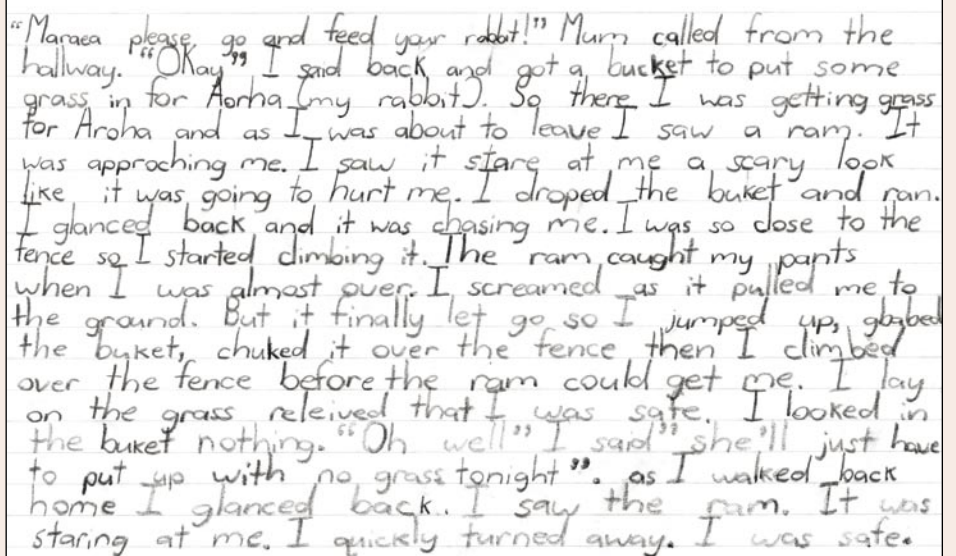 "Maraea please go and feed your rabbit!" Mum called from the
hallway. "OKay" I said back and got a bucket to put some
grass in for Aorha (my rabbit). So there I was getting grass
for Aroha and as I was about to leave I saw a ram. It
was approching me. I saw it stare at me a scary look
like it was going to hurt me. I droped the buket and ran.
I glanced back and it was chasing me. I was so close to the
fence so I started climbing it. The ram caught my pants
when I was almost over. I screamed as it pulled me to
the ground. But it finally let go so I jumped up, gbabed
the buket, chuked it over the fence then I climbed
over the fence before the ram could get me. I lay
on the grass releived that I was safe. I looked in
the buket nothing. "Oh well" I said" she'll just have
to put up with no grass tonight". as I walked back
home I glanced back. I saw the ram. It was
staring at me. I quickly turned away. I was safe.